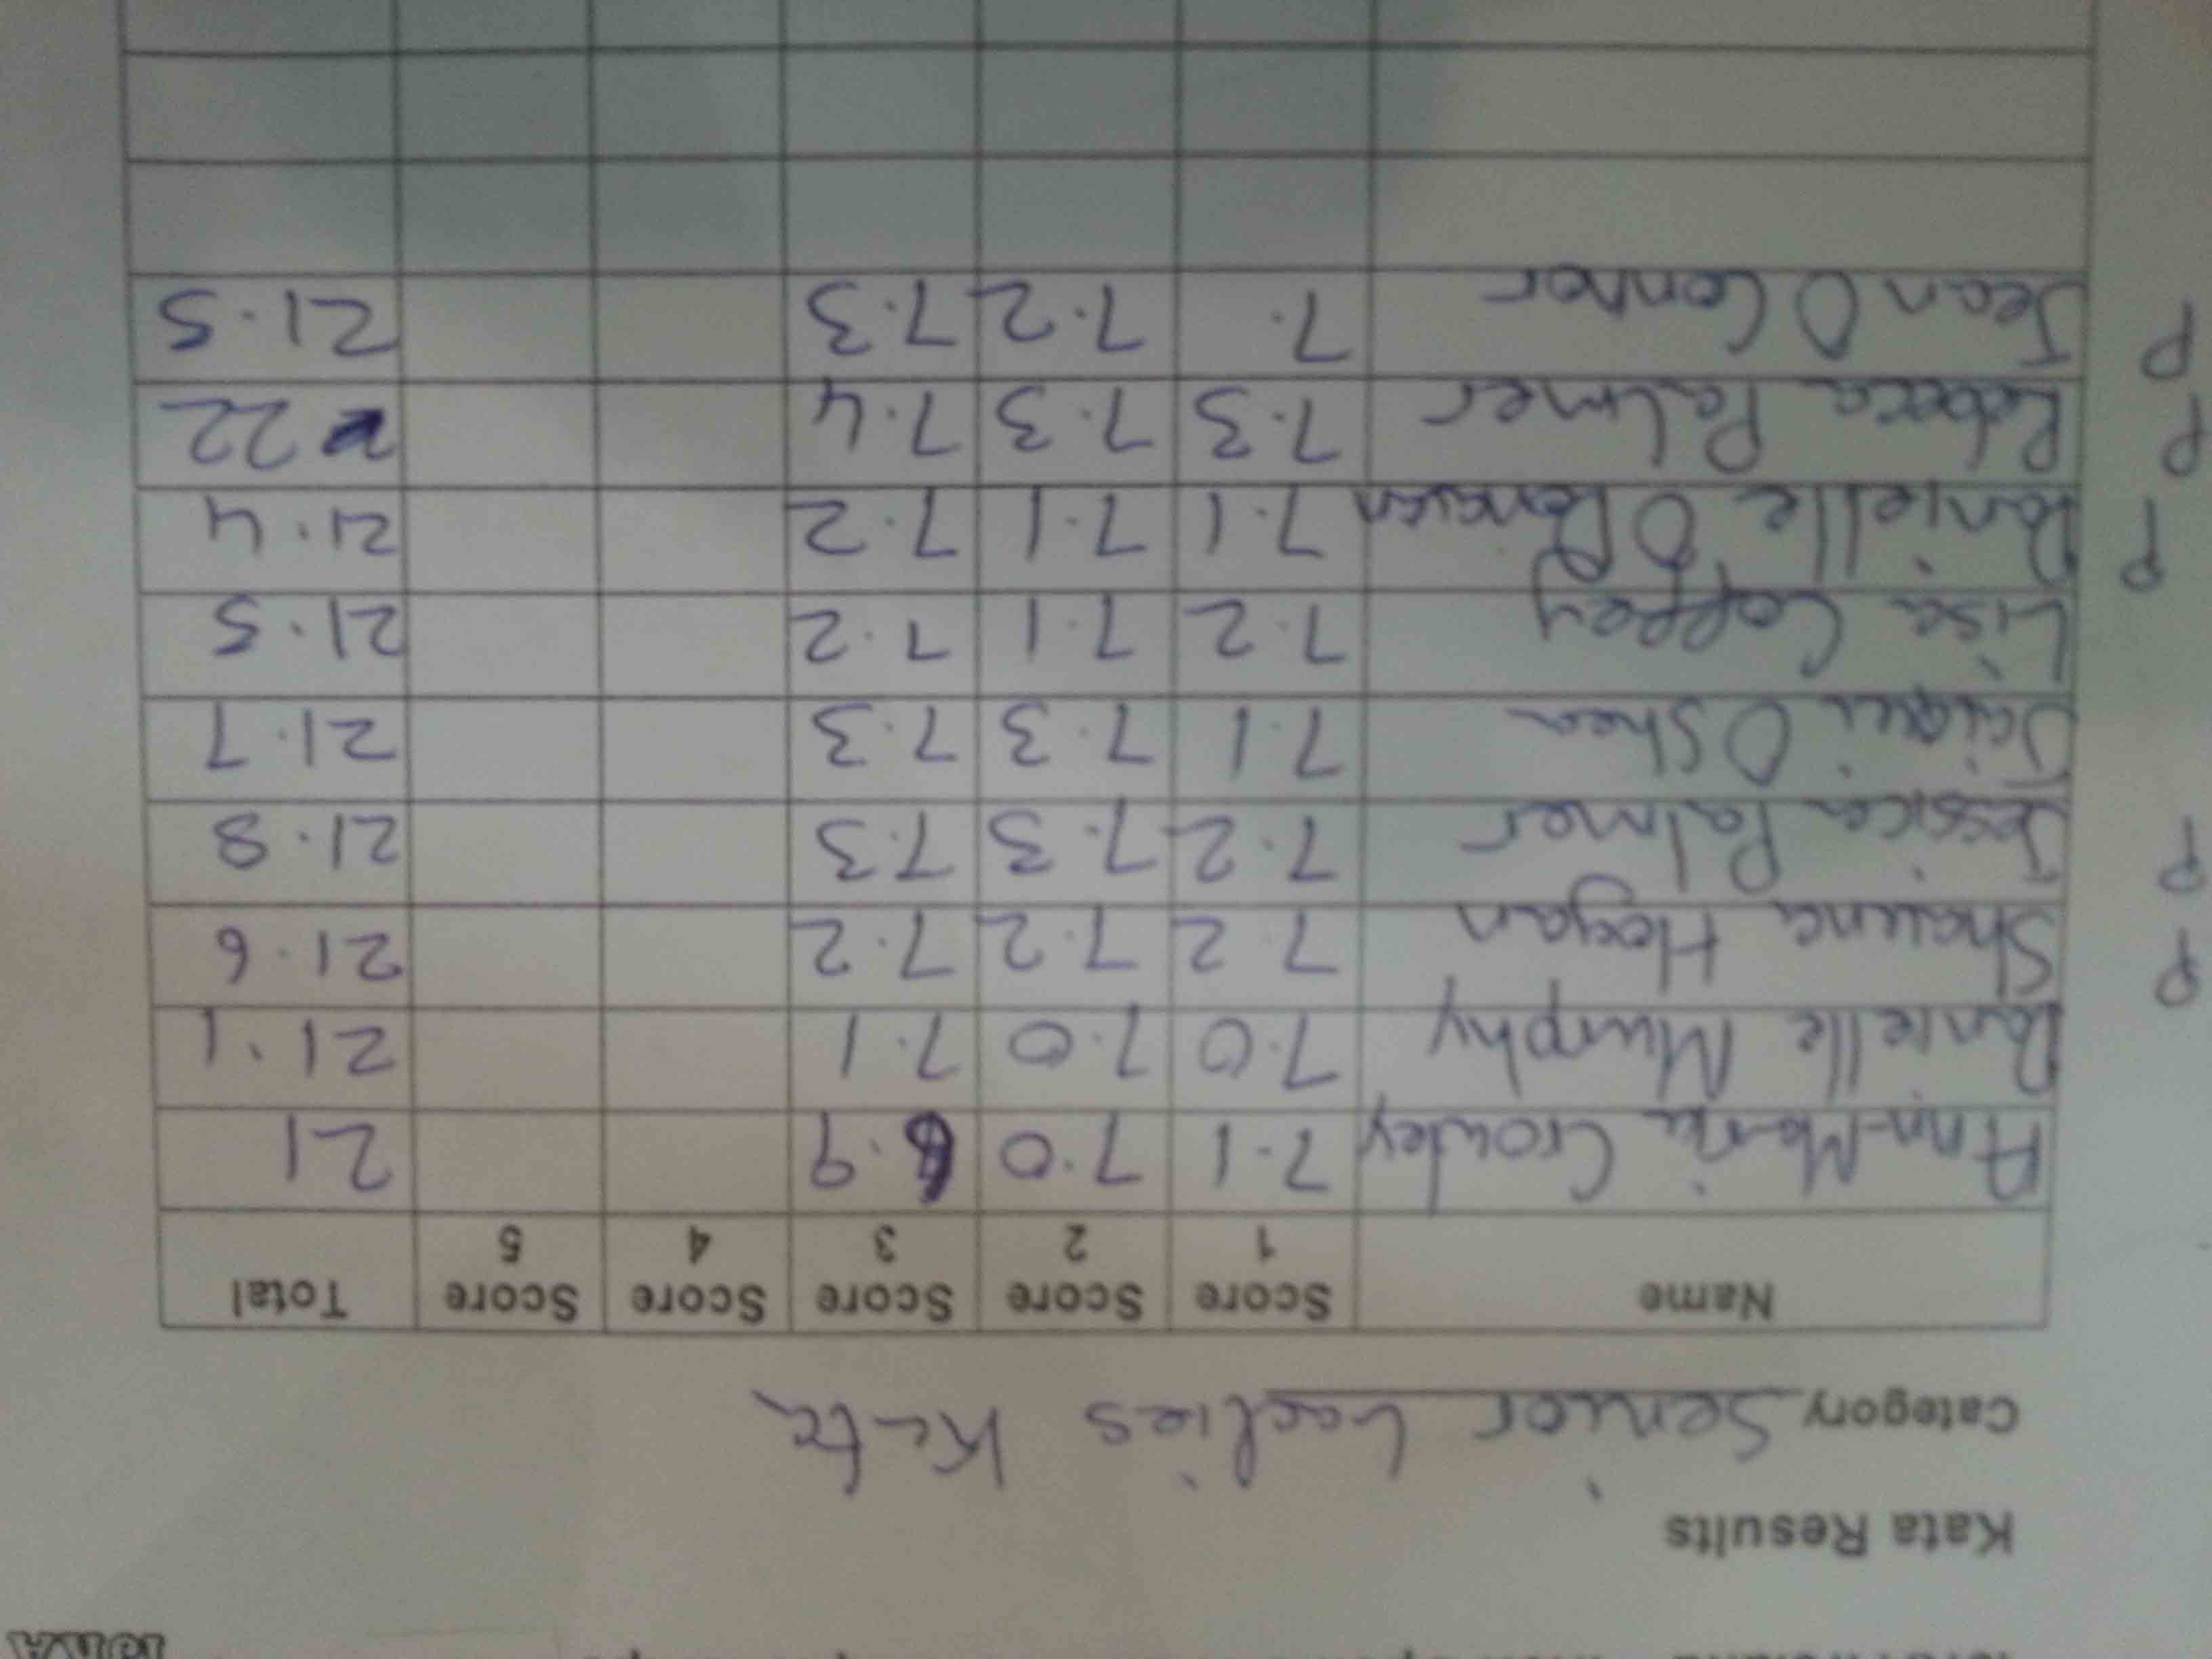 Kata Results
Category Senior Ladies Kata
Name Score 1 Score 2 Score 3 Score 4 Score 5 Total
Ann-Maria Crowley 7.1 7.0 6.9 21
Danielle Murphy 7.0 7.0 7.1 21.1
P Shauna Hogan 7.2 7.2 7.2 21.6
P Jessica Palmer 7.2 7.3 7.3 21.8
O Shea 7.1 7.3 7.3 21.7
Lisa Coffey 7.2 7.1 7.2 21.5
P Danielle O 7.1 7.1 7.2 21.4
P Rebecca Palmer 7.3 7.3 7.4 22
P Jean O Connor 7. 7.2 7.3 21.5